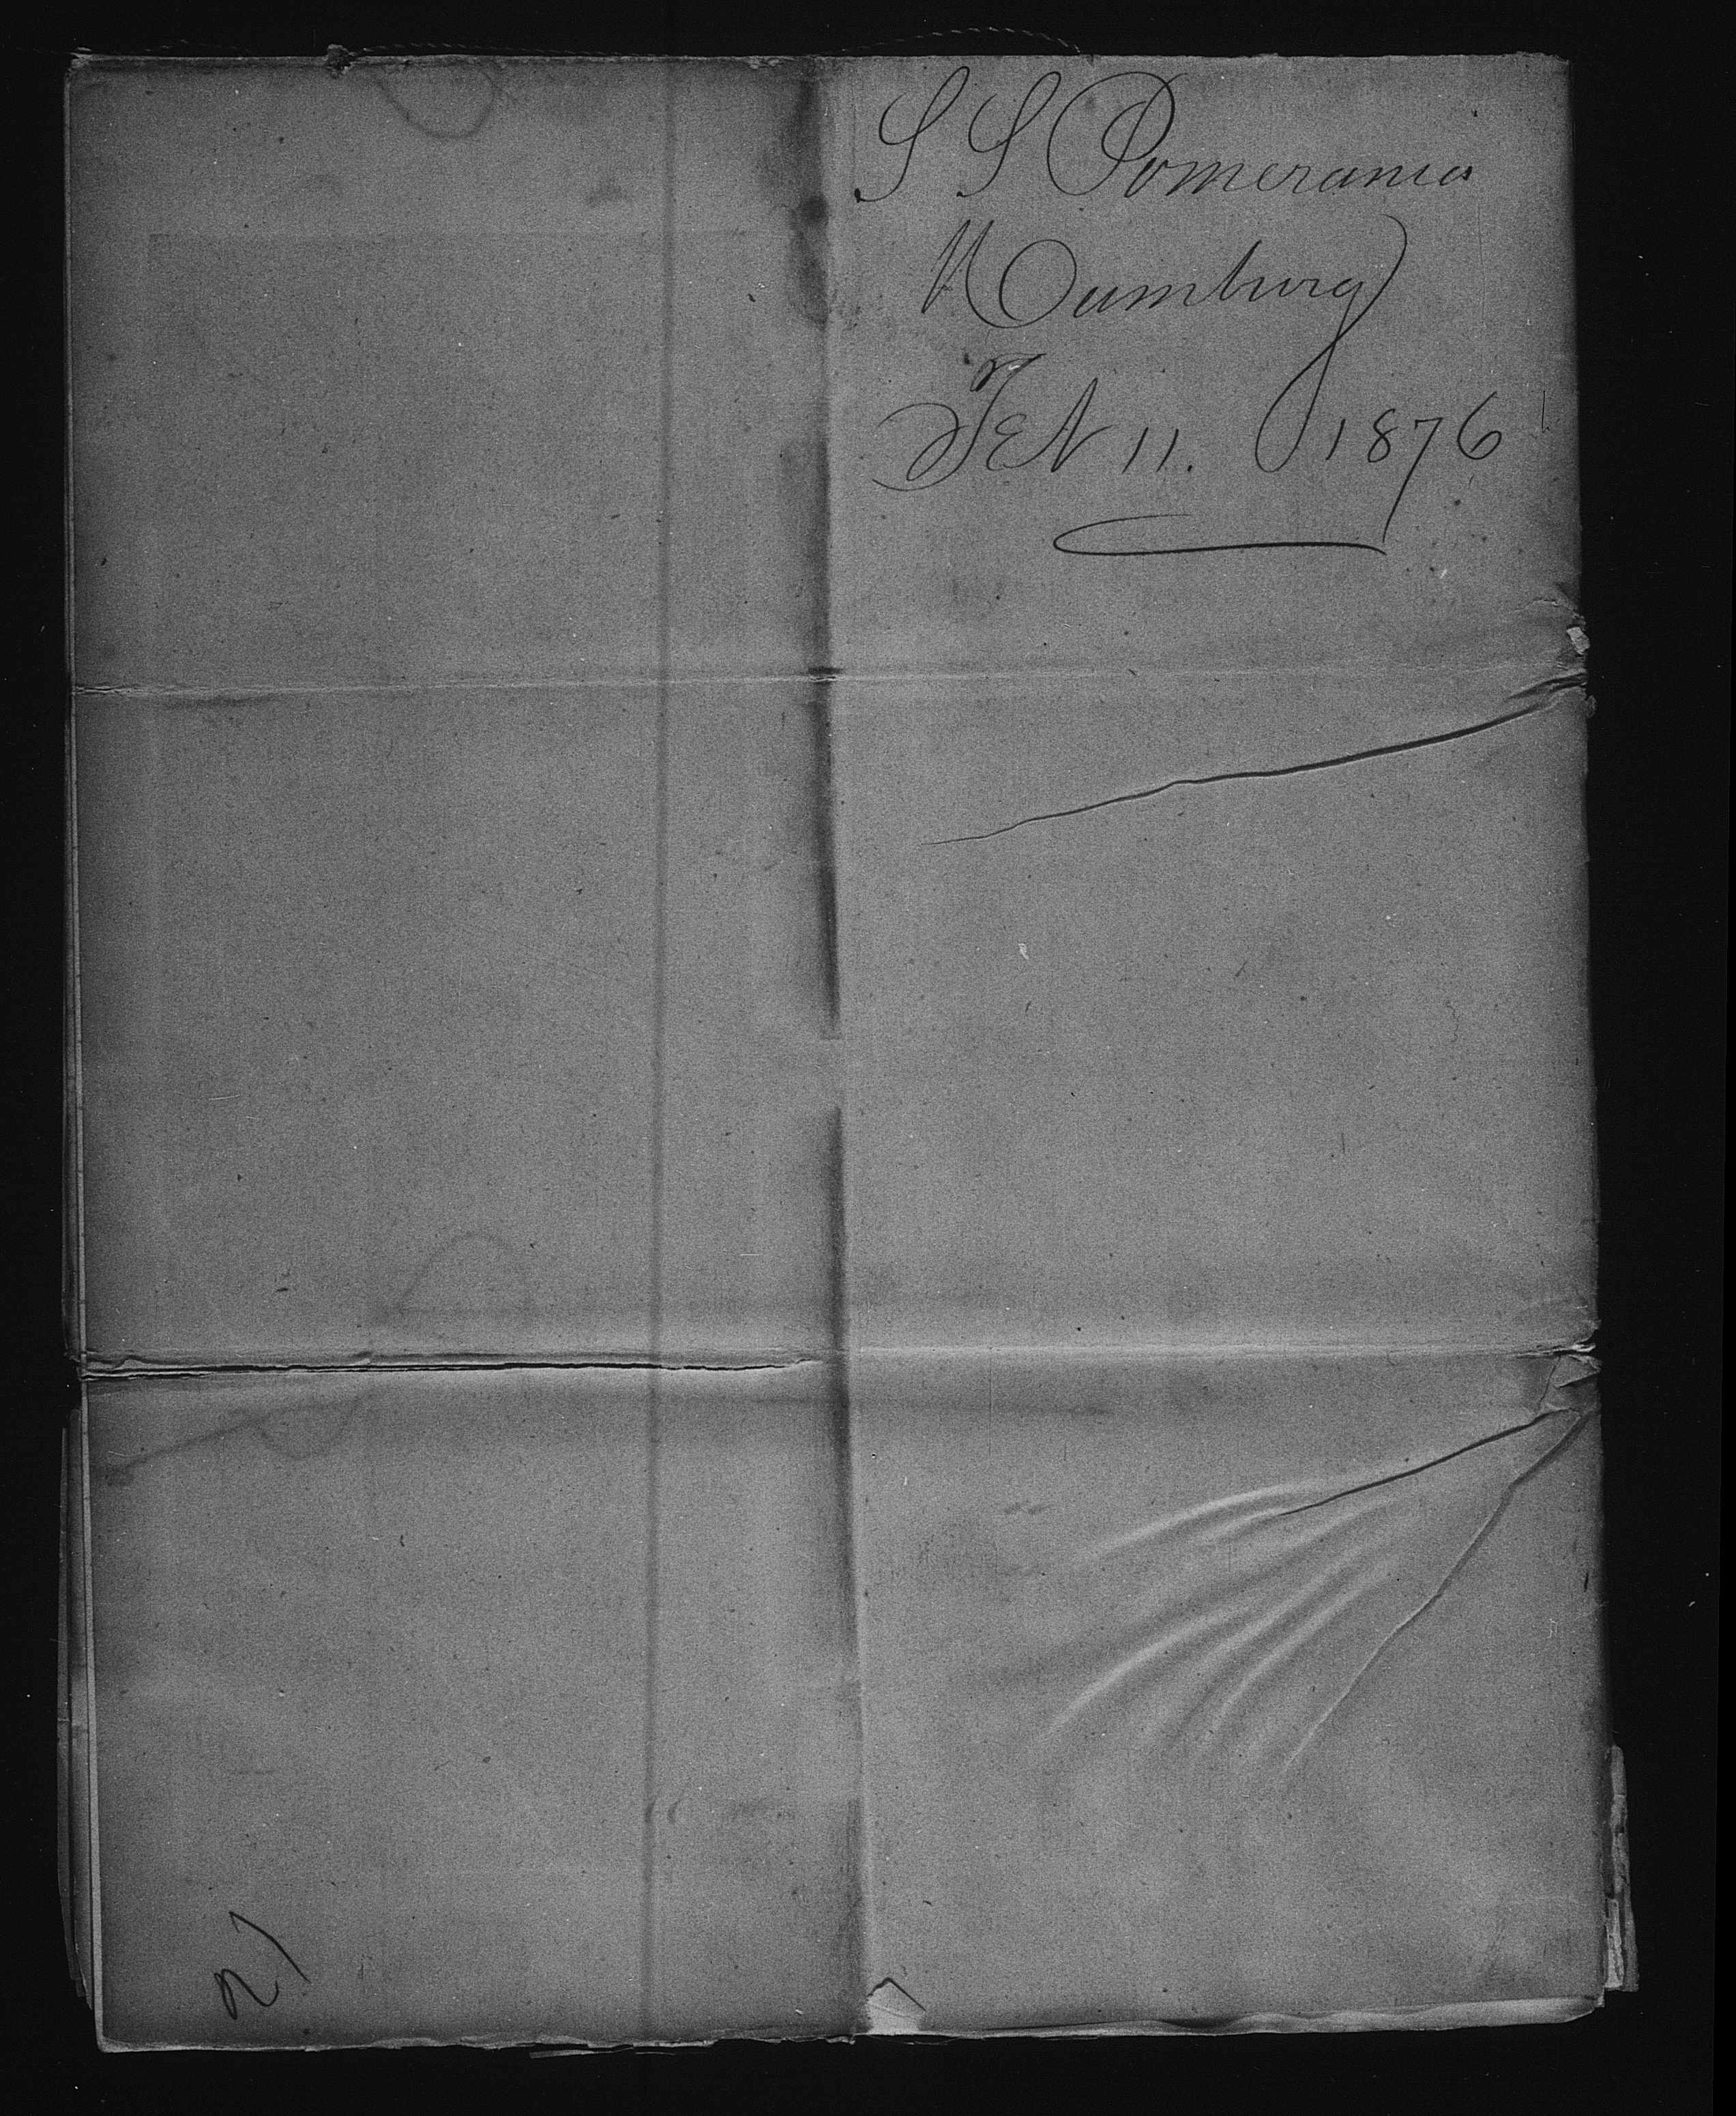 S S Pomerania
Hamburg
Feb 11. 1876
21